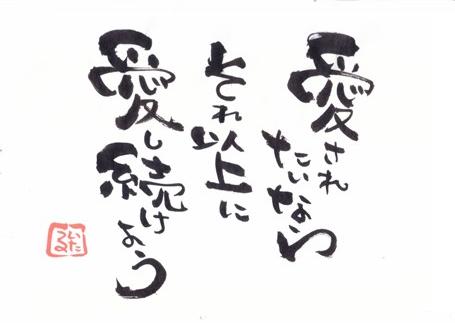 愛されたいなら
それ以上に
愛し続けよう